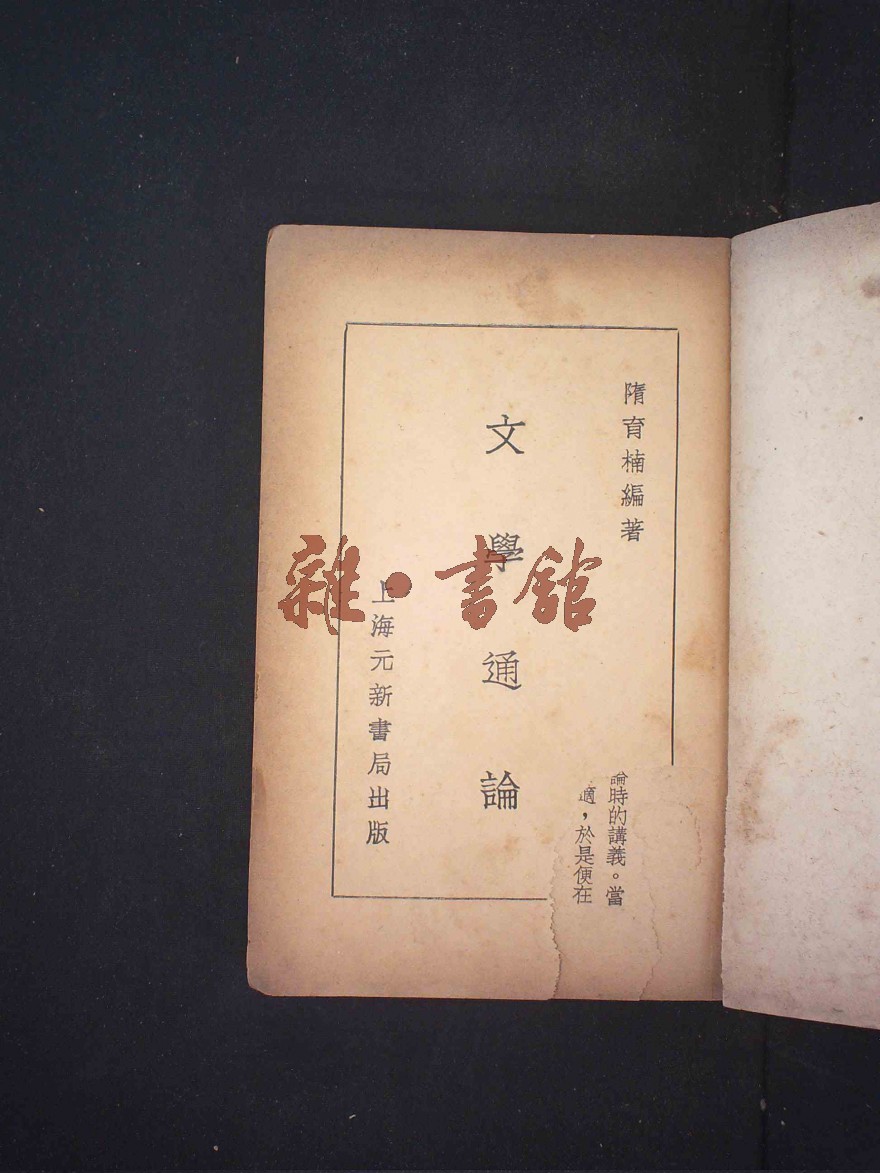 隋育楠編著
文學通論
上海元新書局出版
論時的講義。當
適，於是便在
雜·書館